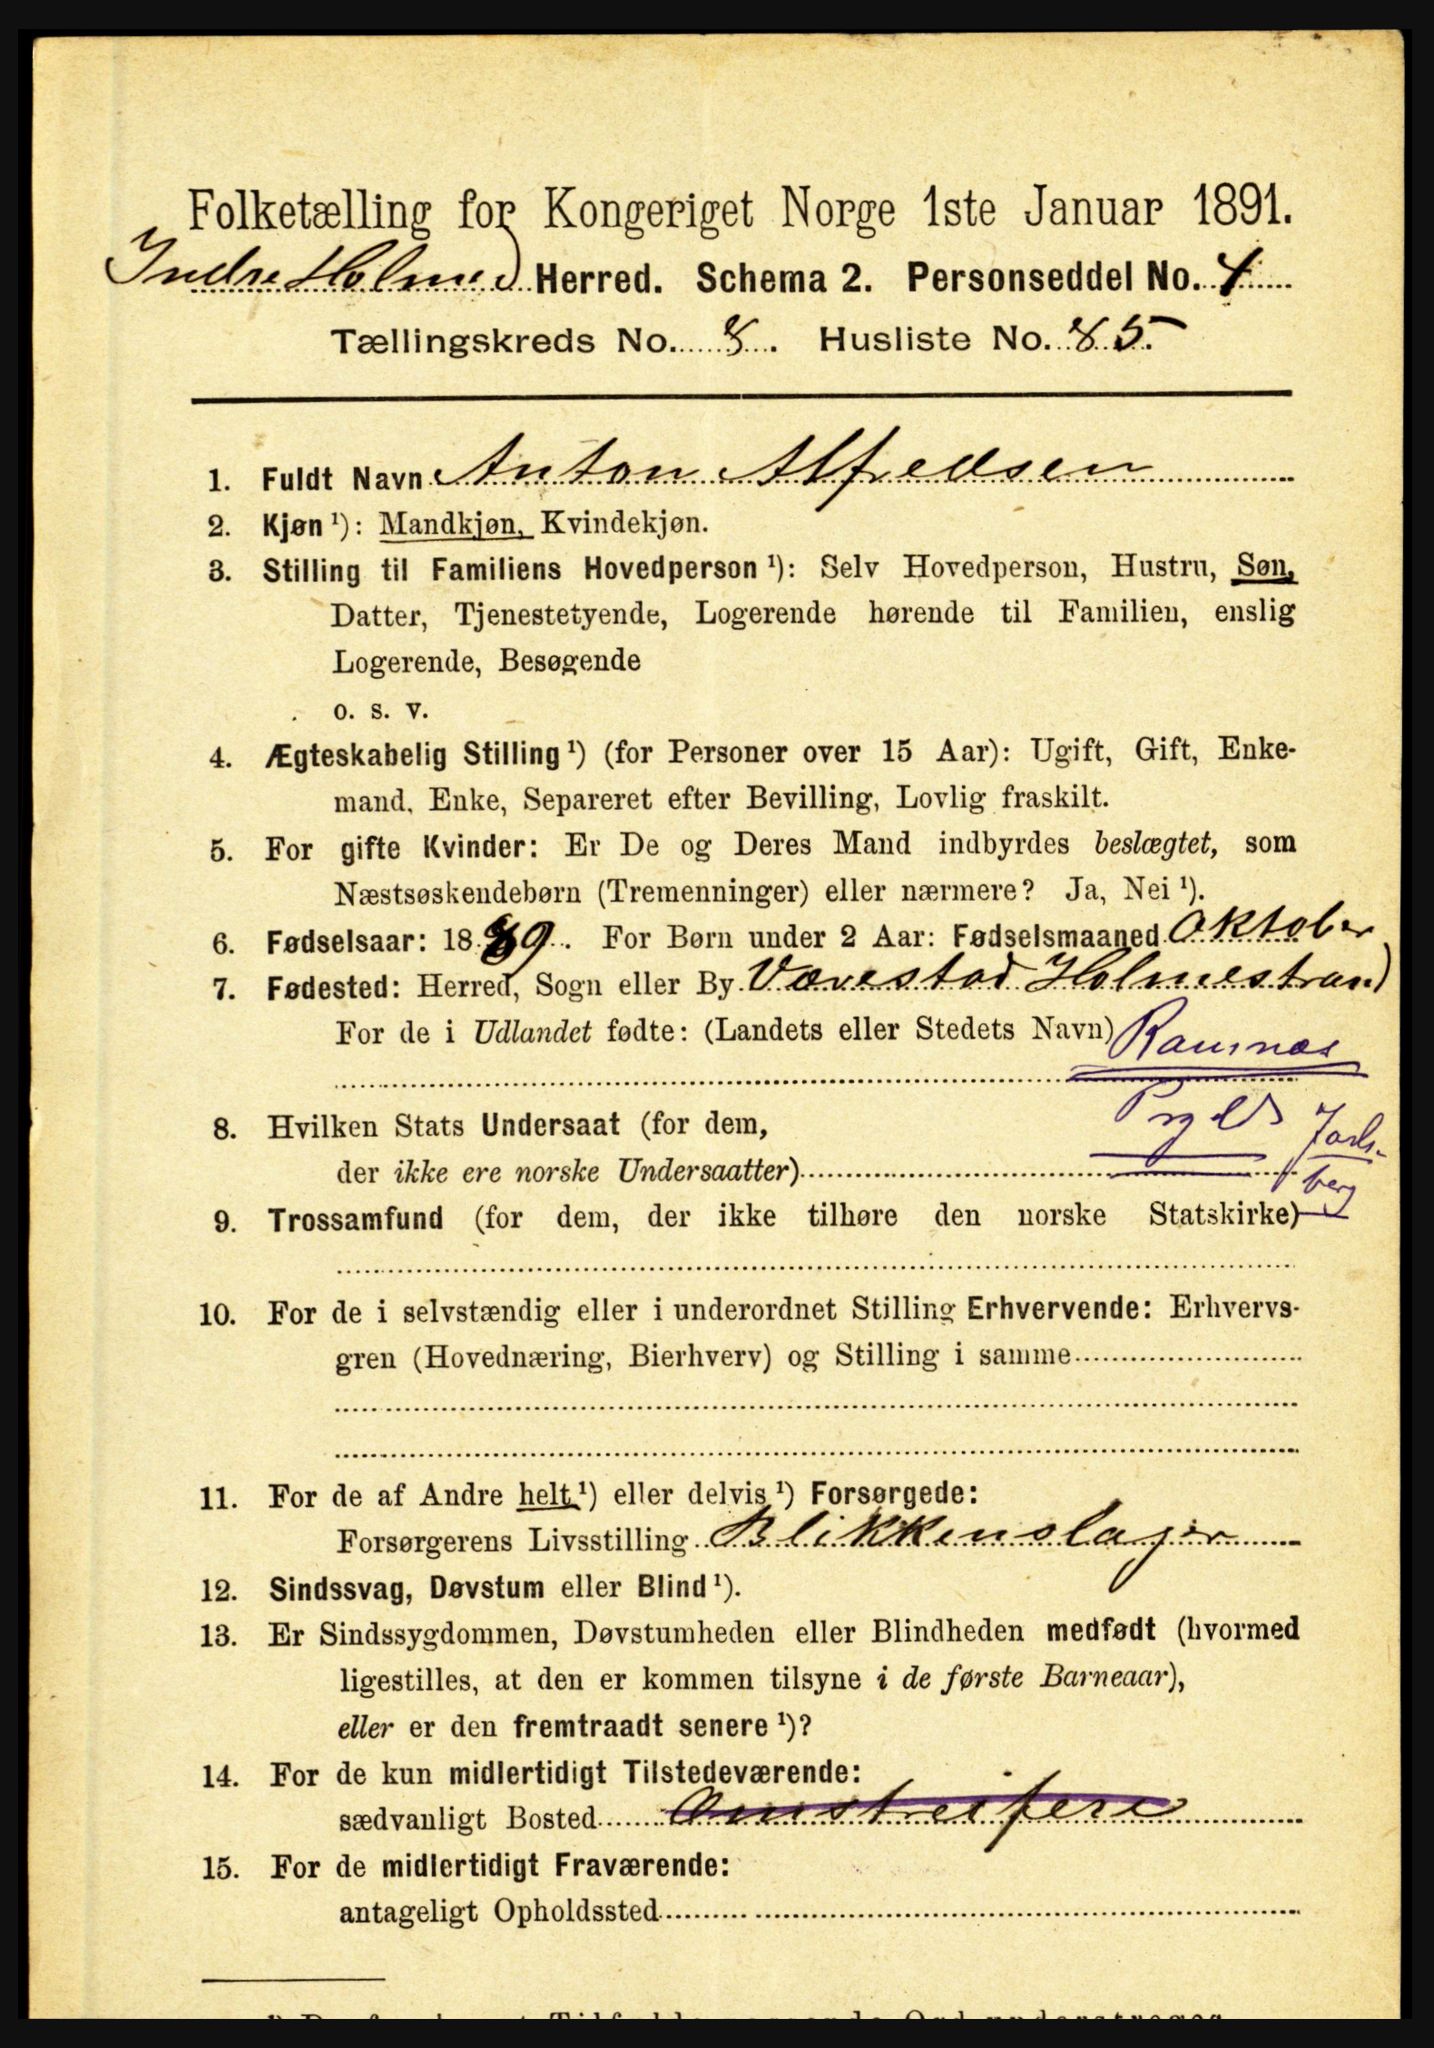 Folketælling for Kongeriget Norge 1ste Januar 1891.
Indre Holmed Herred. Schema 2. Personseddel No. 4
Tællingskreds No. 8. Husliste No. 85.
1. Fuldt Navn Anton Alfredsen
2. Kjøn ¹): Mandkjøn, Kvindekjøn.
3. Stilling til Familiens Hovedperson ¹): Selv Hovedperson, Hustru, Søn,
Datter, Tjenestetyende, Logerende hørende til Familien, enslig
Logerende, Besøgende
o. s. v.
4. Ægteskabelig Stilling ¹) (for Personer over 15 Aar): Ugift, Gift, Enke-
mand, Enke, Separeret efter Bevilling, Lovlig fraskilt.
5. For gifte Kvinder: Er De og Deres Mand indbyrdes beslægtet, som
Næstsøskendebørn (Tremenninger) eller nærmere? Ja, Nei ¹).
6. Fødselsaar: 1889. For Børn under 2 Aar: Fødselsmaaned Oktober
7. Fødested: Herred, Sogn eller By Værestad Holmestrand
For de i Udlandet fødte: (Landets eller Stedets Navn)
Ramnæs
Prgld Jarls-
berg
8. Hvilken Stats Undersaat (for dem,
der ikke ere norske Undersaatter)
9. Trossamfund (for dem, der ikke tilhøre den norske Statskirke)
10. For de i selvstændig eller i underordnet Stilling Erhvervende: Erhvervs-
gren (Hovednæring, Bierhverv) og Stilling i samme
11. For de af Andre helt ¹) eller delvis ¹) Forsørgede:
Forsørgerens Livsstilling Blikkenslager
12. Sindssvag, Døvstum eller Blind ¹).
13. Er Sindssygdommen, Døvstumheden eller Blindheden medfødt (hvormed
ligestilles, at den er kommen tilsyne i de første Barneaar),
eller er den fremtraadt senere ¹)?
14. For de kun midlertidigt Tilstedeværende:
sædvanligt Bosted Omstreifere
15. For de midlertidigt Fraværende:
antageligt Opholdssted